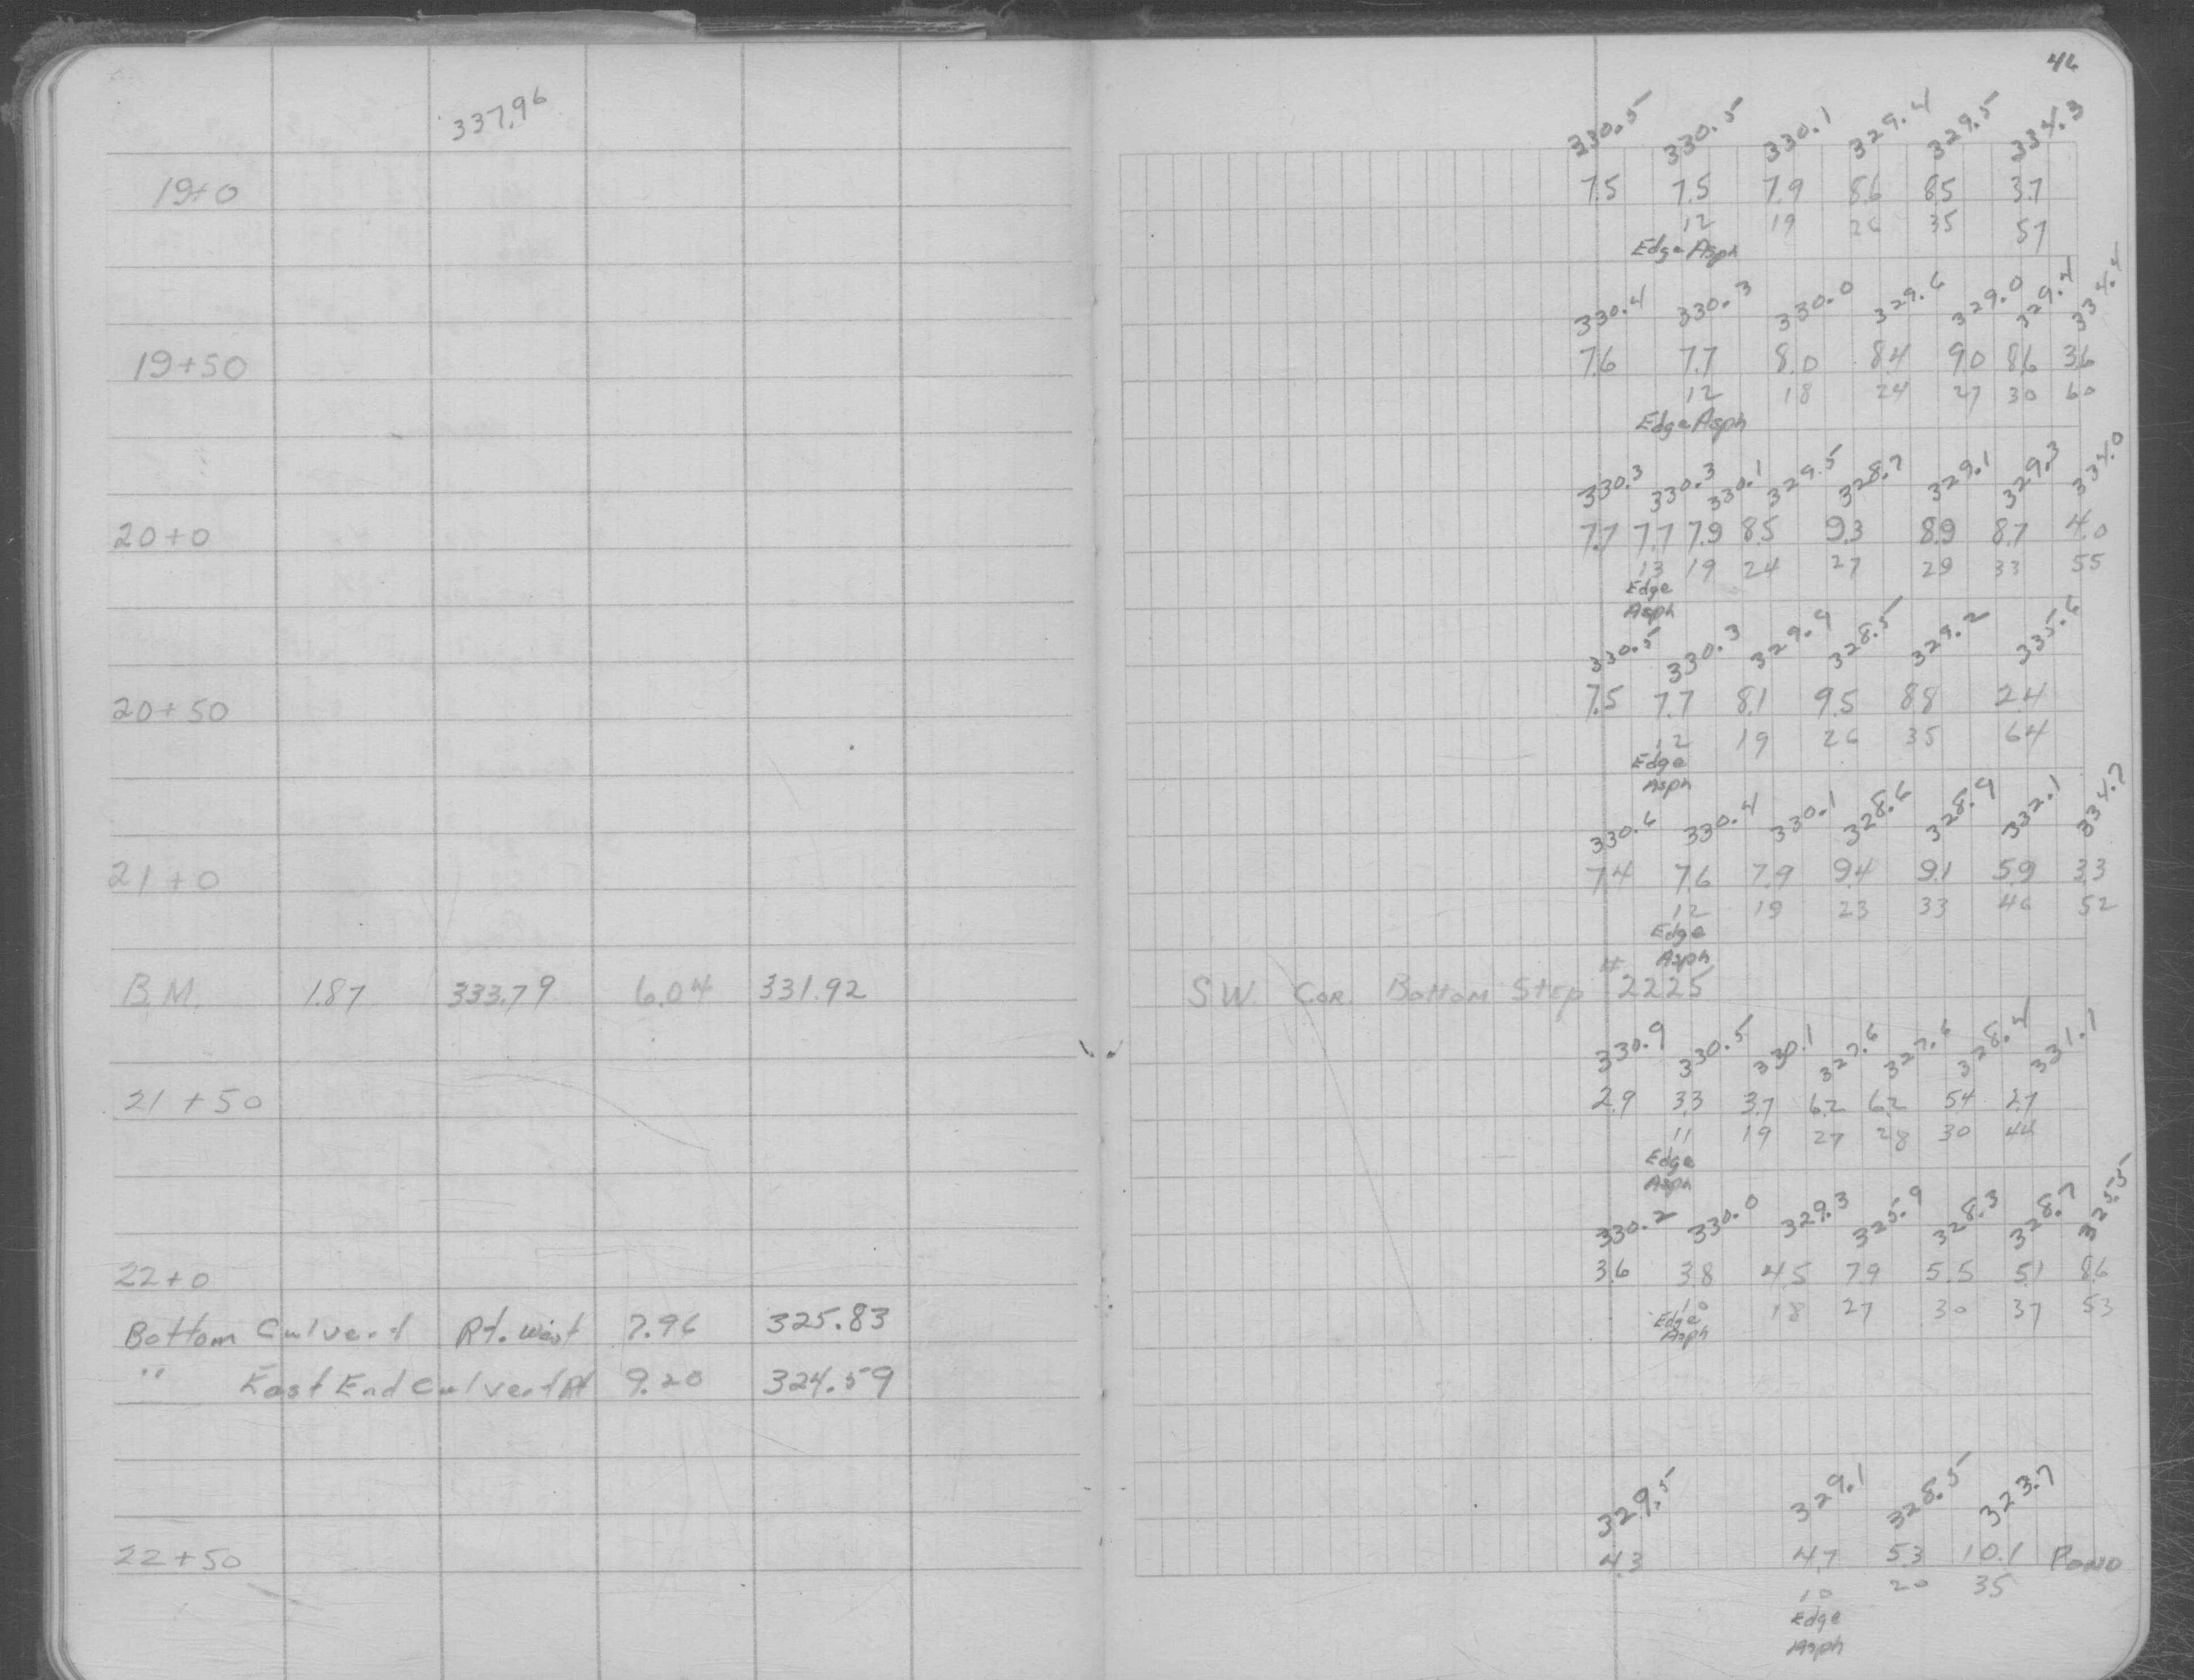 46
337.96
330.5 330.5 330.1 329.4 329.5 334.3
19+0 7.5 7.5 7.9 8.6 8.5 3.7
12 19 26 35 57
Edge Asph
330.4 330.3 330.0 329.6 329.0 329.4 334.4
19+50 7.6 7.7 8.0 8.4 9.0 8.6 3.6
12 18 24 27 30 60
Edge Asph
330.3 330.3 330.1 329.5 328.7 329.1 329.3 334.0
20+0 7.7 7.7 7.9 8.5 9.3 8.9 8.7 4.0
13 19 24 27 29 33 55
Edge
Asph
330.5 330.3 329.9 328.5 329.2 335.6
20+50 7.5 7.7 8.1 9.5 8.8 2.4
12 19 26 35 64
Edge
Asph
330.6 330.4 330.1 328.6 328.9 332.1 334.7
21+0 7.4 7.6 7.9 9.4 9.1 5.9 3.3
12 19 23 33 46 52
Edge
Asph
B.M. 1.87 333.79 6.04 331.92 S.W. Cor. Bottom Step #2225
330.9 330.5 330.1 327.6 327.6 328.4 331.1
21+50 2.9 3.3 3.7 6.2 6.2 5.4 2.7
11 19 27 28 30 44
Edge
Asph
330.2 330.0 329.3 325.9 328.3 328.7 325.5
22+0 3.6 3.8 4.5 7.9 5.5 5.1 8.6
10 18 27 30 37 53
Edge
Asph
Bottom Culvert Rt. West 7.96 325.83
" East End Culvert Rt 9.20 324.59
329.5 329.1 328.5 323.7
22+50 4.3 4.7 5.3 10.1 Pond
10 20 35
Edge
Asph